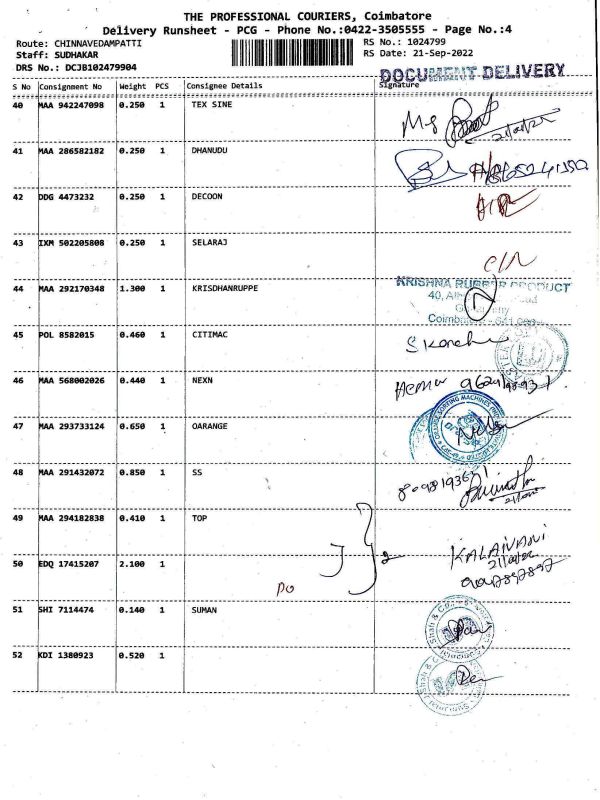 THE PROFESSIONAL COURIERS, Coimbatore
Delivery Runsheet - PCG - Phone No.:0422-3505555 - Page No.:4
Route: CHINNAVEDAMPATTI RS No.: 1024799
Staff: SUDHAKAR RS Date: 21-Sep-2022
DRS No.: DCJB102479904
DOCUMENT DELIVERY
S No Consignment No Weight PCS Consignee Details Signature
40 MAA 942247098 0.250 1 TEX SINE
41 MAA 286582182 0.250 1 DHANUDU
42 DDG 4473232 0.250 1 DECOON
43 IXM 502205808 0.250 1 SELARAJ
44 MAA 292170348 1.300 1 KRISDHANRUPPE
KRISHNA RUBBER PRODUCT
45 POL 8582015 0.460 1 CITIMAC
46 MAA 568002026 0.440 1 NEXN
47 MAA 293733124 0.650 1 OARANGE
48 MAA 291432072 0.850 1 SS
49 MAA 294182838 0.410 1 TOP
KALAIVANI
50 EDQ 17415207 2.100 1
DO
51 SHI 7114474 0.140 1 SUMAN
52 KDI 1380923 0.520 1